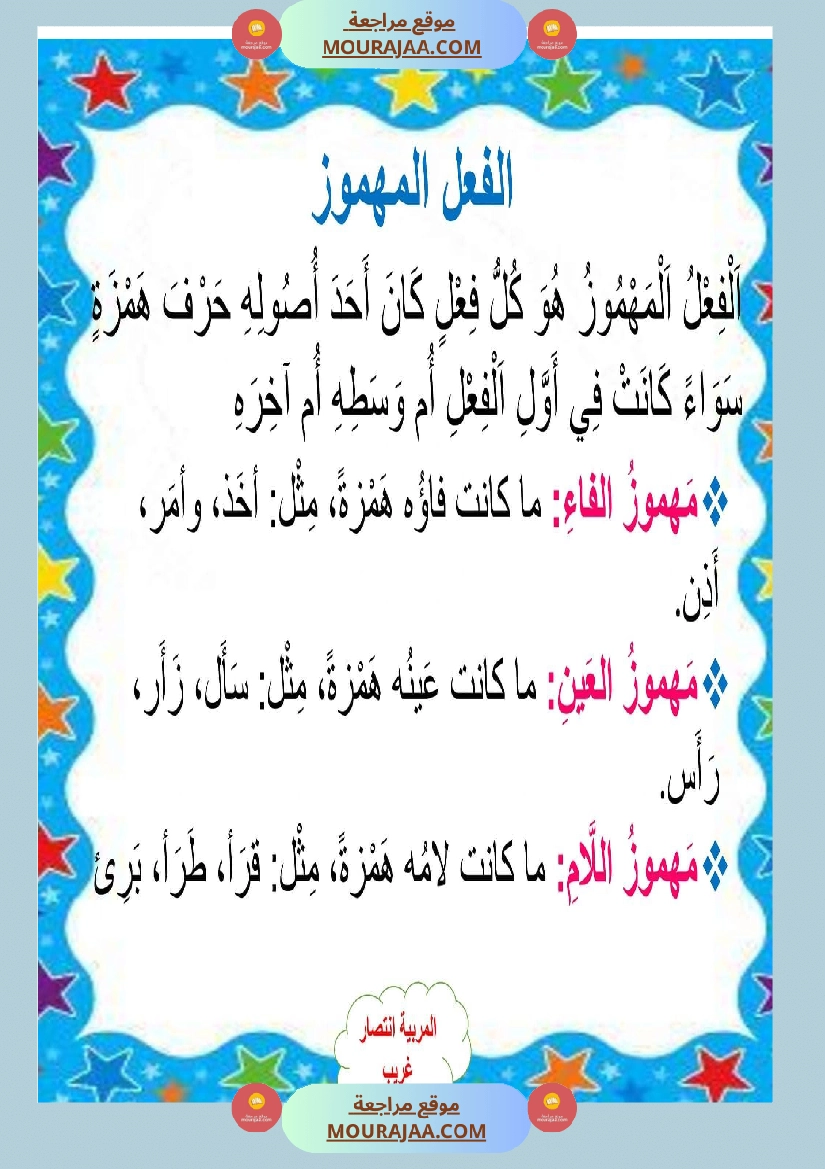 موقع مراجعة
MOURAJAA.COM
الفعل المهموز
اَلْفِعْلُ اَلْمَهْمُوزُ هُوَ كُلُّ فِعْلٍ كَانَ أَحَدَ أُصُولِهِ حَرْفَ هَمْزَةٍ
سَوَاءً كَانَتْ فِي أَوَّلِ اَلْفِعْلِ أُم وَسَطِهِ أُم آخِرَهِ
❖ مَهموزُ الفاءِ: ما كانت فاؤُه هَمْزةً، مِثْل: أخَذ، وأمَر،
أَذِن.
❖ مَهموزُ العَينِ: ما كانت عَينُه هَمْزةً، مِثْل: سَأَل، زَأَر،
رَأَس.
❖ مَهموزُ اللَّامِ: ما كانت لامُه هَمْزةً، مِثْل: قرَأ، طَرَأ، بَرِئ
المربية انتصار
غريب
موقع مراجعة
MOURAJAA.COM